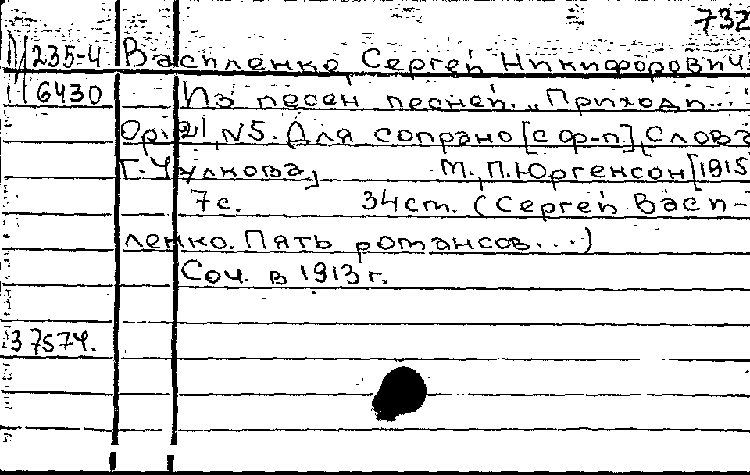 732
М 235-4 Василенко, Сергей Никифорович
6430 Из песен песней. „Приходи..."
Op. 31, N5. Для сопрано [с ф-п], Слова
Г. Чулкова, М., П. Юргенсон, [1915
7с. 34 cm. (Сергей Васи-
ленко. Пять романсов...)
Соч. в 1913 г.
37574.